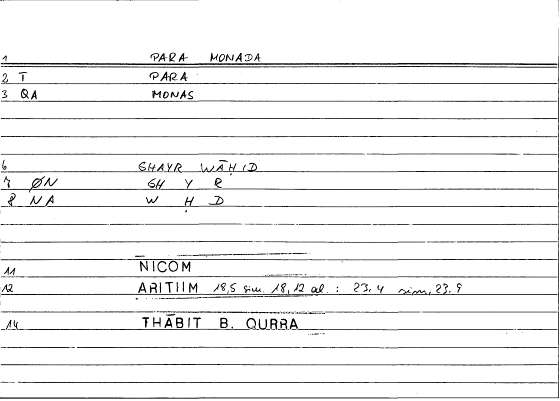 1 PARA MONADA
2 T PARA
3 QA MONAS
6 GHAYR WĀḤID
7 ØN GH Y R
8 NA W Ḥ D
11 NICOM
12 ARITIIM 18,5 sim. 18,12 al. : 23.4 sim, 23.9
14 THĀBIT B. QURRA